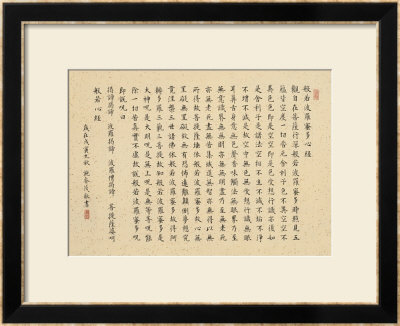 般若波羅蜜多心經
觀自在菩薩行深般若波羅蜜多時照見五
蘊皆空度一切苦厄舍利子色不異空空不
異色色即是空空即是色受想行識亦復如
是舍利子是諸法空相不生不滅不垢不淨
不增不減是故空中無色無受想行識無眼
耳鼻舌身意無色聲香味觸法無眼界乃至
無意識界無無明亦無無明盡乃至無老死
亦無老死盡無苦集滅道無智亦無得以無
所得故菩提薩埵依般若波羅蜜多故心無
罣礙無罣礙故無有恐怖遠離顛倒夢想究
竟涅槃三世諸佛依般若波羅蜜多故得阿
耨多羅三藐三菩提故知般若波羅蜜多是
大神呪是大明呪是無上呪是無等等呪能
除一切苦真實不虛故說般若波羅蜜多呪
即說呪曰
揭諦揭諦 波羅揭諦 波羅僧揭諦 菩提薩婆訶
般若心經
歲在戊寅之秋 敬書